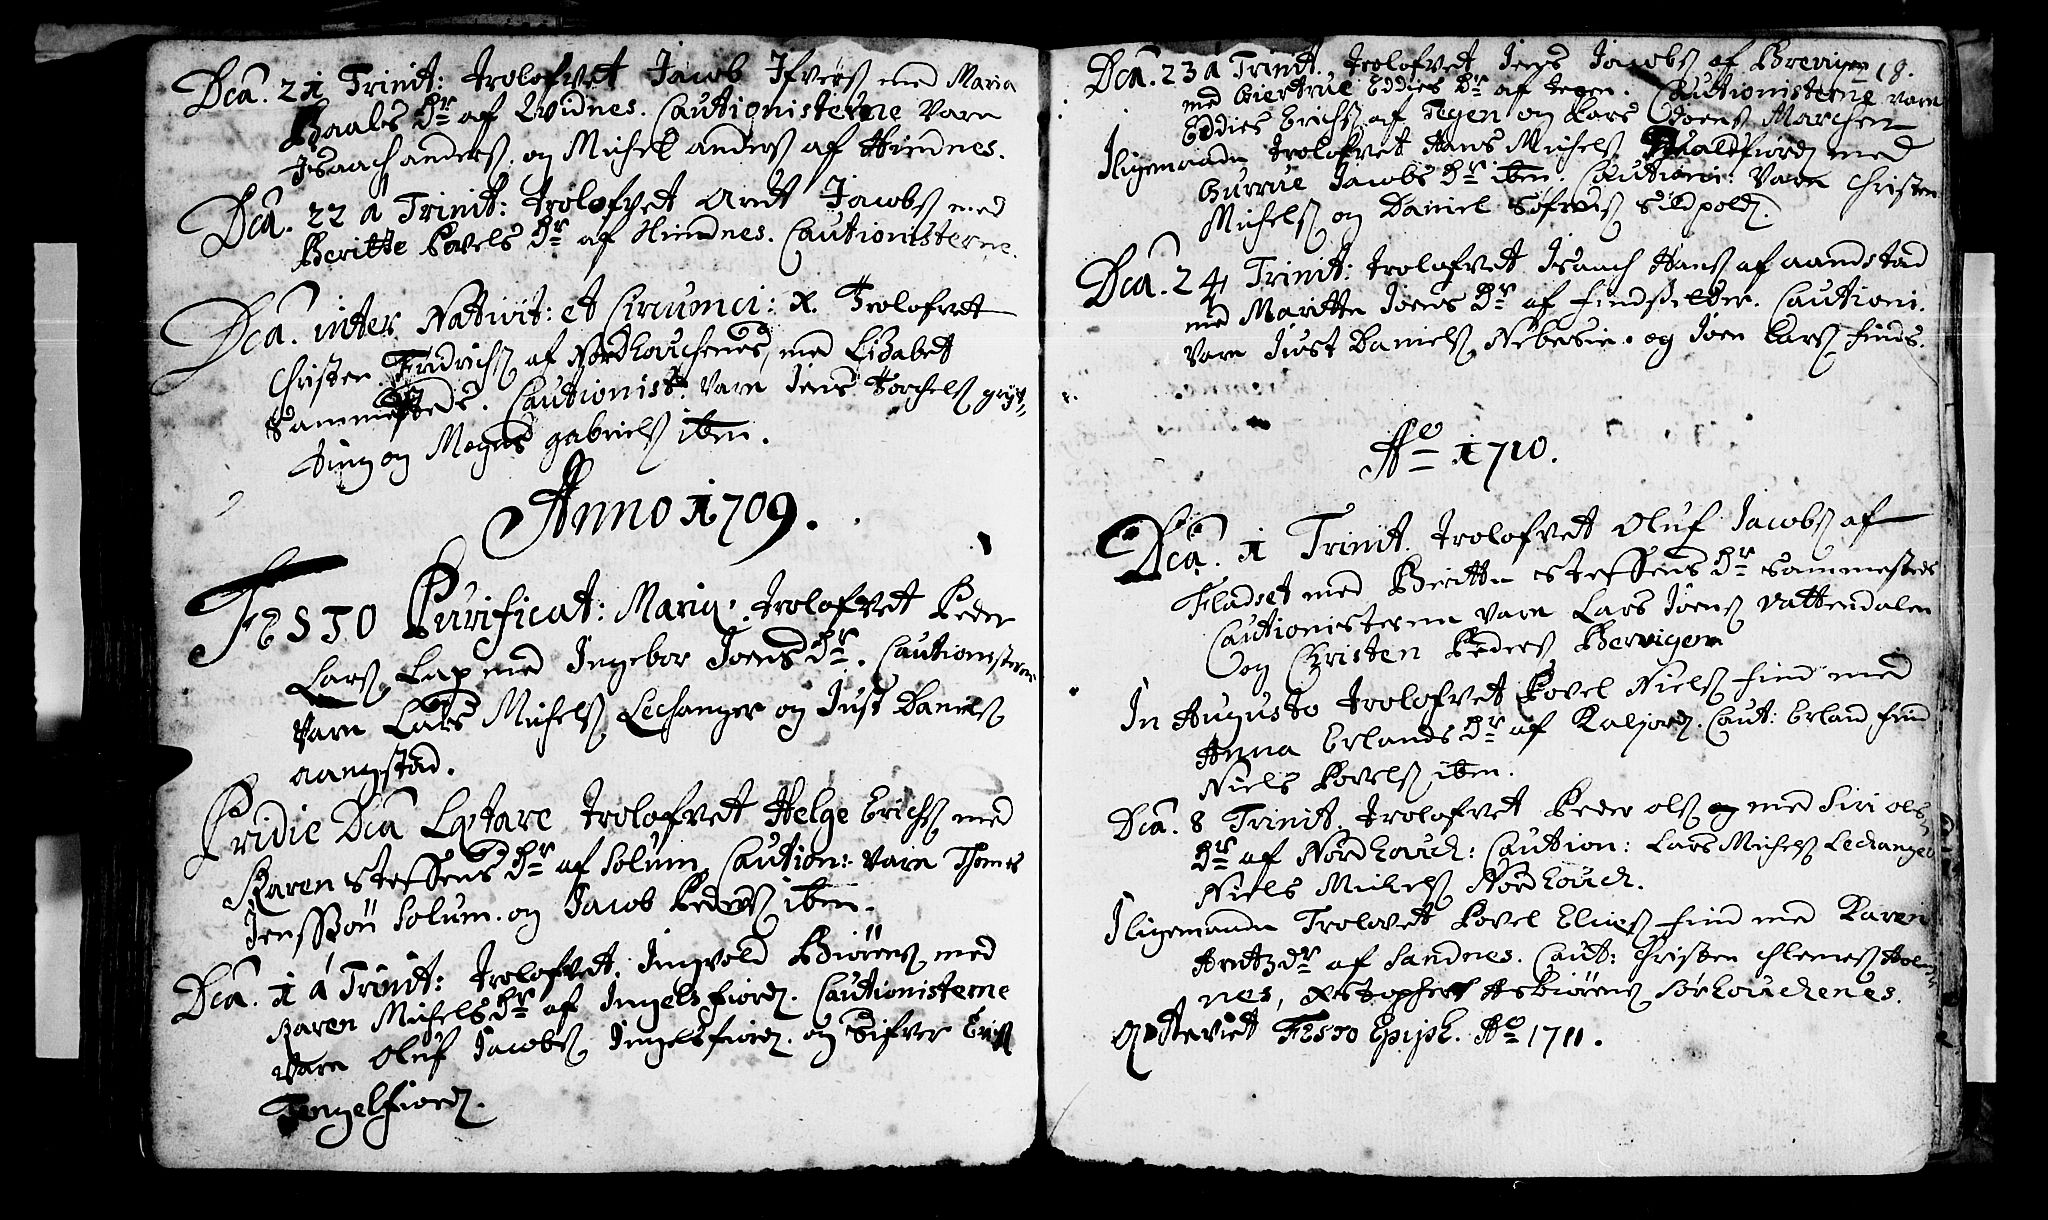 Dca. 21 Trinit: trolofvet Jacob Ifvers med Maria
Baals Dr af Qvidnes. Cautionisterne vare
Isaach anders. og Michel anders af Hindnes.
Dca. 22 á Trinit: trolofvet Arnt Jacobs med
Beritte Povels Dr af Hindnes. Cautionisterne.
Dca. inter Nativit: et Circumci: X. Trolofvet
Christen Fridrichs af Nordhouchenes, med Lisabet
sammesteds. Cautionist. vare Jens Torchels gryt-
ting og Mogns gabriels ibm.
Anno 1709.
FESTO Purificat: Mariæ: trolofvet Peder
Lars Lap med Ingebor Joens Dr. Cautionisterne
vare Lars Michels Lechanger og Just Daniels
aangstad.
Pridie Dca Lætare trolofvet Helge Erichs med
Karen Steffens Dr af Solum Caution: vare Thomes
Jenssøn Solum. og Jacob Peders ibm.
Dca. 1 á Trinit: trolofvet. Ingvold Biørens med
Karen Michels Dr af Ingelsfiord. Cautionisterne
vare Oluf Jacobs Ingelsfiord. og Sifver Erichs
Ingelfiord.
Dca. 23 á Trinit. trolofvet Jens Jacobs af Brevigen 18.
med Giertrue Eddies Dr af tegen. Cautionisterne vare
Eddies Erichs af Tegen og Lars Joens Marchen
Iligemaade trolofvet Hans Michels Hualdfiord med
Gurrue Jacobs Dr ibm. Cautioni: vare Christen
Michels og Daniel Søfrens Sildpold.
Dca. 24 Trinit: trolofvet Isaach Hans af aandstad
med Maritte Joens Dr af findsetter. Cautioni.
vare Just Daniels Nebesie. og Joen Lars finds.
Ao 1710.
Dca. 1 Trinit. trolofvet Oluf Jacobs af
Fladset med Beritte Steffens Dr sammesteds
Cautionisterne vare Lars Joens Vattendalen
og Christen Peders Bervigen
In Augusto trolofvet Povel Niels find med
Anna Erlands Dr af Kaljord. Caut: Erland find
Niels Povels ibm.
Dca. 8 Trinit. trolofvet Peder ols og med Siri ols
Dr af Nordhouch: Caution: Lars Michels Lechanger
Niels Michels Nordhouch.
Iligemaade Trolovet Povel Elies find med Karen
Arntz dr af Sandnes. Caut: Christen Clemes Holm-
nes, Xstopher Asbiørens Sørhouchenes.
Qvitteviet FESTO Epiph. Ao 1711.